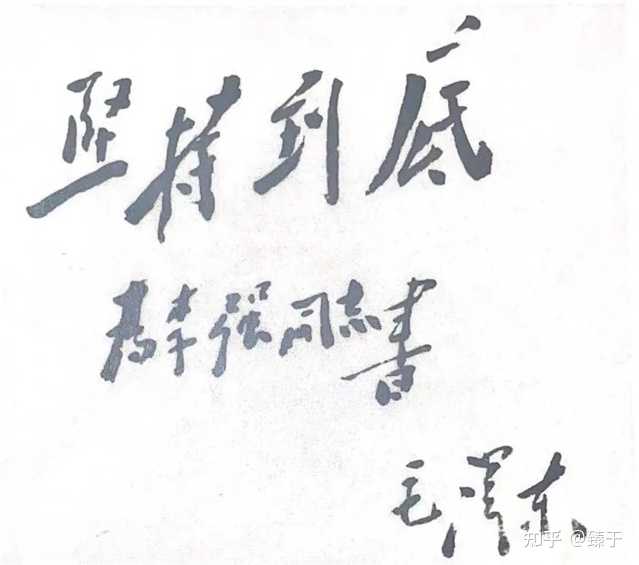 坚持到底
為李强同志書
毛泽东
知乎 @臻于